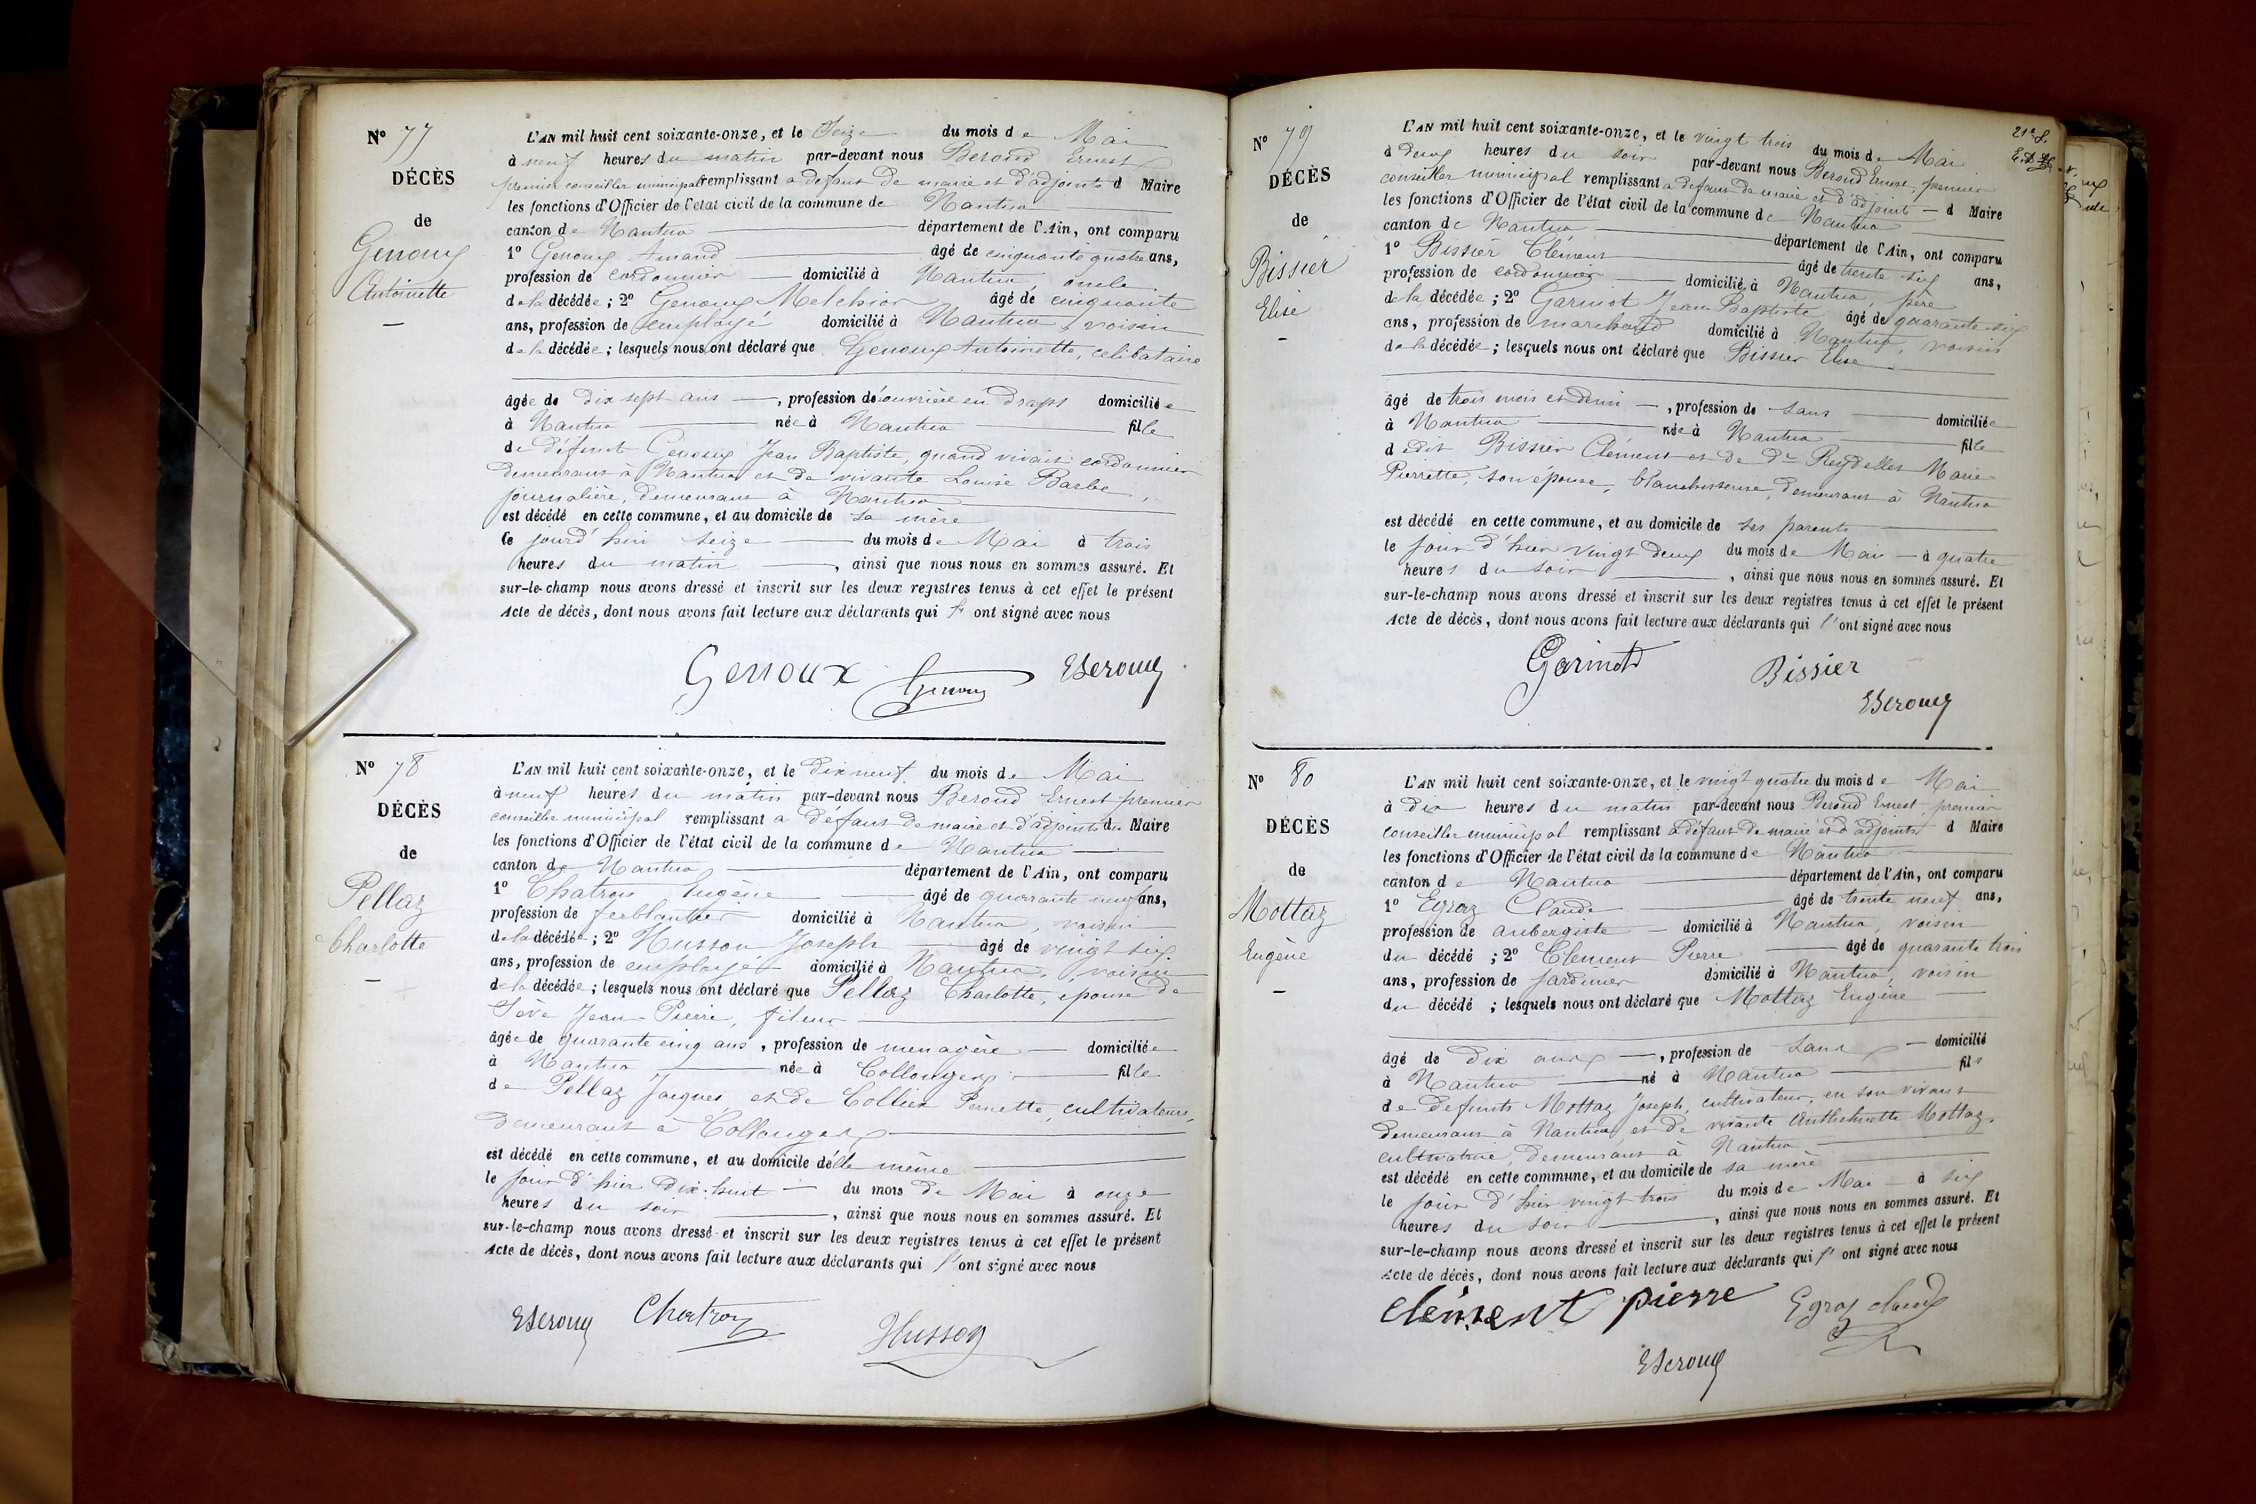 N° 77
DÉCÈS
de
Genoux
Antoinette
L'AN mil huit cent soixante-onze, et le Seize du mois de Mai
à neuf heures du matin par-devant nous Beroud Ernest
premier conseiller municipal remplissant a defaut de maire et d'adjoints d Maire
les fonctions d'Officier de l'état civil de la commune de Nantua
canton de Nantua département de l'Ain, ont comparu
1° Genoux Amand âgé de cinquante quatre ans,
profession de cordonnier domicilié à Nantua, oncle
de la décédée ; 2° Genoux Melchior âgé de cinquante
ans, profession de employé domicilié à Nantua, voisin
de la décédée ; lesquels nous ont déclaré que Genoux Antoinette, celibataire
âgée de dix sept ans , profession d'ouvrière en draps domiciliée
à Nantua née à Nantua fille
de défunt Genoux Jean Baptiste, quand vivait cordonnier
demeurant à Nantua et de vivante Louise Barbe,
journalière, demeurant à Nantua
est décédé en cette commune, et au domicile de sa mère
le jourd'hui seize du mois de Mai à trois
heures du matin , ainsi que nous nous en sommes assuré. Et
sur-le-champ nous avons dressé et inscrit sur les deux registres tenus à cet effet le présent
Acte de décès, dont nous avons fait lecture aux déclarants qui l' ont signé avec nous
Genoux Genoux EBeroud
N° 78
DÉCÈS
de
Pellaz
Charlotte
L'AN mil huit cent soixante-onze, et le dix neuf du mois de Mai
à neuf heures du matin par-devant nous Beroud Ernest premier
conseiller municipal remplissant a defaut de maire et d'adjoints du Maire
les fonctions d'Officier de l'état civil de la commune de Nantua
canton de Nantua département de l'Ain, ont comparu
1° Chatron Eugène âgé de quarante neuf ans,
profession de ferblantier domicilié à Nantua, voisin
de la décédée ; 2° Husson Joseph âgé de vingt six
ans, profession de employé domicilié à Nantua, voisin
de la décédée ; lesquels nous ont déclaré que Pellaz Charlotte, épouse de
Sève Jean-Pierre, fileur
âgée de quarante cinq ans , profession de menagère domiciliée
à Nantua née à Collonges fille
de Pellaz Jacques et de Collier Pernette, cultivateurs,
demeurant à Collonges
est décédé en cette commune, et au domicile d'elle même
le jour d'hier dix-huit du mois de Mai à onze
heures du soir , ainsi que nous nous en sommes assuré. Et
sur-le-champ nous avons dressé et inscrit sur les deux registres tenus à cet effet le présent
Acte de décès, dont nous avons fait lecture aux déclarants qui l' ont signé avec nous
EBeroud Chatron Husson
N° 79
DÉCÈS
de
Bissier
Elise
L'AN mil huit cent soixante-onze, et le vingt trois du mois de Mai
à deux heures du soir par-devant nous Beroud Ernest, premier
conseiller municipal remplissant a defaut de maire et d'adjoint d Maire
les fonctions d'Officier de l'état civil de la commune de Nantua
canton de Nantua département de l'Ain, ont comparu
1° Bissier Clément âgé de trente six ans,
profession de cordonnier domicilié à Nantua, père
de la décédée ; 2° Garinot Jean Baptiste âgé de quarante six
ans, profession de marchand domicilié à Nantua, voisin
de la décédée ; lesquels nous ont déclaré que Bissier Elise
âgé de trois mois et demi , profession de sans domiciliée
à Nantua née à Nantua fille
dudit Bissier Clément et de De Reydellet Marie
Pierrette, son épouse, blanchisseuse, demeurant à Nantua
est décédé en cette commune, et au domicile de ses parents
le jour d'hier vingt deux du mois de Mai à quatre
heures du soir , ainsi que nous nous en sommes assuré. Et
sur-le-champ nous avons dressé et inscrit sur les deux registres tenus à cet effet le présent
Acte de décès, dont nous avons fait lecture aux déclarants qui l' ont signé avec nous
Garinot Bissier
EBeroud
N° 80
DÉCÈS
de
Mottaz
Eugène
L'AN mil huit cent soixante-onze, et le vingt quatre du mois de Mai
à dix heures du matin par-devant nous Beroud Ernest premier
conseiller municipal remplissant à défaut de maire et d'adjoints d Maire
les fonctions d'Officier de l'état civil de la commune de Nantua
canton de Nantua département de l'Ain, ont comparu
1° Egraz Claude âgé de trente neuf ans,
profession de aubergiste domicilié à Nantua, voisin
du décédé ; 2° Clément Pierre âgé de quarante trois
ans, profession de jardinier domicilié à Nantua, voisin
du décédé ; lesquels nous ont déclaré que Mottaz Eugène
âgé de dix ans , profession de sans domicilié
à Nantua né à Nantua fils
de defunts Mottaz Joseph, cultivateur, en son vivant
demeurant à Nantua, et de vivante Anthelmette Mottaz,
cultivatrice, demeurant à Nantua
est décédé en cette commune, et au domicile de sa mère
le jour d'hier vingt trois du mois de Mai à six
heures du soir , ainsi que nous nous en sommes assuré. Et
sur-le-champ nous avons dressé et inscrit sur les deux registres tenus à cet effet le présent
Acte de décès, dont nous avons fait lecture aux déclarants qui l' ont signé avec nous
clément pierre Egraz claude
EBeroud